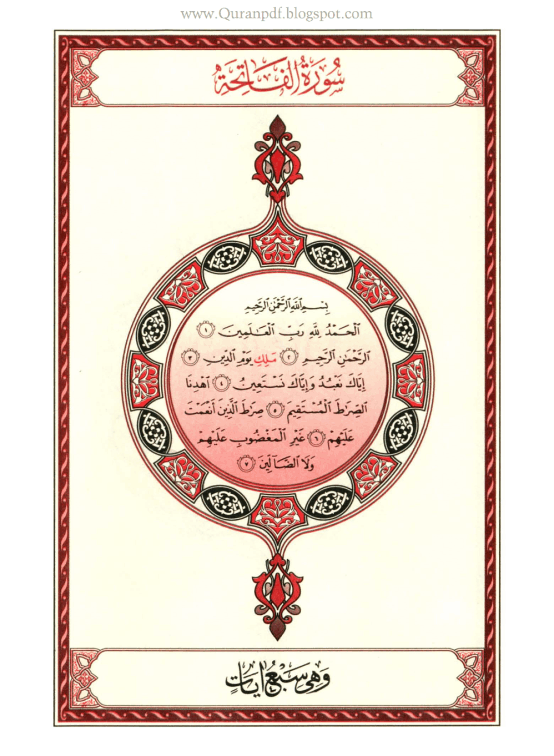 www.Quranpdf.blogspot.com
سُورَةُ الفَاتِحَةِ
بِسْمِ اللَّهِ الرَّحْمَٰنِ الرَّحِيمِ
الْحَمْدُ لِلَّهِ رَبِّ الْعَٰلَمِينَ ١
الرَّحْمَٰنِ الرَّحِيمِ ٢ مَلِكِ يَوْمِ الدِّينِ ٣
إِيَّاكَ نَعْبُدُ وَإِيَّاكَ نَسْتَعِينُ ٤ اَهْدِنَا
الصِّرَٰطَ الْمُسْتَقِيمَ ٥ صِرَٰطَ الَّذِينَ أَنْعَمْتَ
عَلَيْهِمْ ٦ غَيْرِ الْمَغْضُوبِ عَلَيْهِمْ
وَلَا الضَّآلِّينَ ٧
وَهِيَ سَبْعُ ايَاتٍ